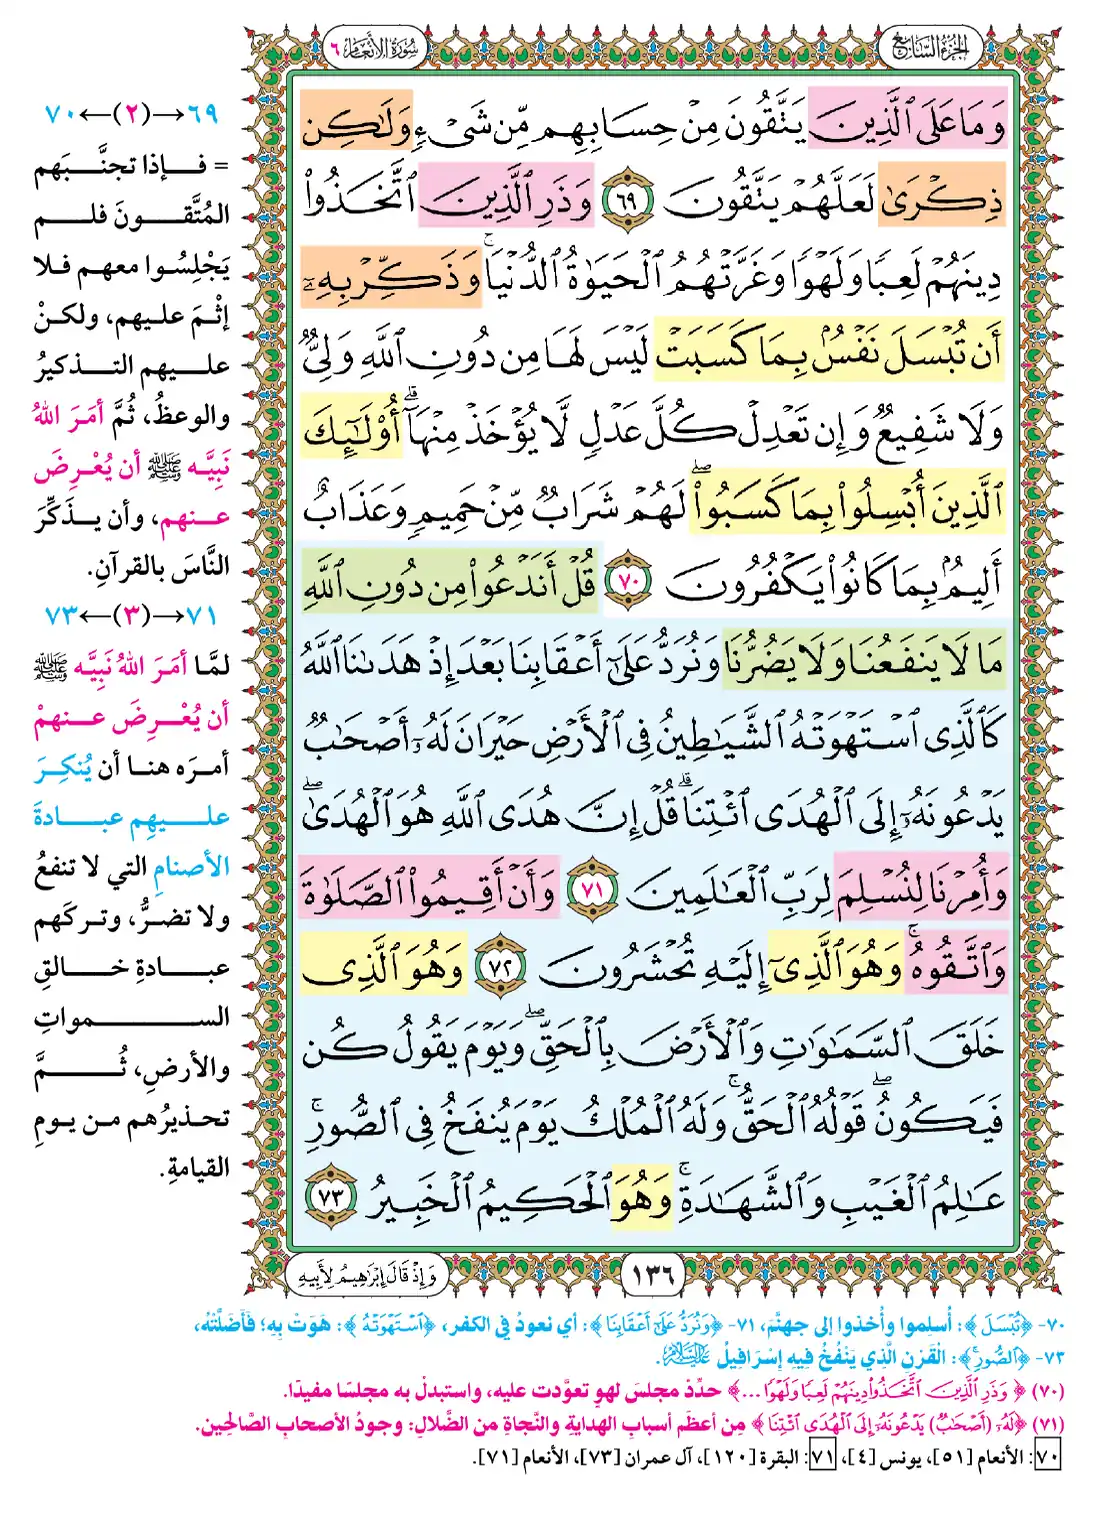 الجزء السابع
سورة الأنعام ٦
وَمَا عَلَى ٱلَّذِينَ يَتَّقُونَ مِنْ حِسَابِهِم مِّن شَىْءٍ وَلَٰكِن
ذِكْرَىٰ لَعَلَّهُمْ يَتَّقُونَ ٦٩ وَذَرِ ٱلَّذِينَ ٱتَّخَذُوا۟
دِينَهُمْ لَعِبًا وَلَهْوًا وَغَرَّتْهُمُ ٱلْحَيَوٰةُ ٱلدُّنْيَا ۚ وَذَكِّرْ بِهِۦٓ
أَن تُبْسَلَ نَفْسٌۢ بِمَا كَسَبَتْ لَيْسَ لَهَا مِن دُونِ ٱللَّهِ وَلِىٌّ
وَلَا شَفِيعٌ وَإِن تَعْدِلْ كُلَّ عَدْلٍ لَّا يُؤْخَذْ مِنْهَآ ۗ أُو۟لَٰٓئِكَ
ٱلَّذِينَ أُبْسِلُوا۟ بِمَا كَسَبُوا۟ ۖ لَهُمْ شَرَابٌ مِّنْ حَمِيمٍ وَعَذَابٌ
أَلِيمٌۢ بِمَا كَانُوا۟ يَكْفُرُونَ ٧٠ قُلْ أَنَدْعُوا۟ مِن دُونِ ٱللَّهِ
مَا لَا يَنفَعُنَا وَلَا يَضُرُّنَا وَنُرَدُّ عَلَىٰٓ أَعْقَابِنَا بَعْدَ إِذْ هَدَىٰنَا ٱللَّهُ
كَٱلَّذِى ٱسْتَهْوَتْهُ ٱلشَّيَٰطِينُ فِى ٱلْأَرْضِ حَيْرَانَ لَهُۥٓ أَصْحَٰبٌ
يَدْعُونَهُۥٓ إِلَى ٱلْهُدَى ٱئْتِنَا ۗ قُلْ إِنَّ هُدَى ٱللَّهِ هُوَ ٱلْهُدَىٰ ۖ
وَأُمِرْنَا لِنُسْلِمَ لِرَبِّ ٱلْعَٰلَمِينَ ٧١ وَأَنْ أَقِيمُوا۟ ٱلصَّلَوٰةَ
وَٱتَّقُوهُ ۚ وَهُوَ ٱلَّذِىٓ إِلَيْهِ تُحْشَرُونَ ٧٢ وَهُوَ ٱلَّذِى
خَلَقَ ٱلسَّمَٰوَٰتِ وَٱلْأَرْضَ بِٱلْحَقِّ ۖ وَيَوْمَ يَقُولُ كُن
فَيَكُونُ ۖ قَوْلُهُ ٱلْحَقُّ ۚ وَلَهُ ٱلْمُلْكُ يَوْمَ يُنفَخُ فِى ٱلصُّورِ ۚ
عَٰلِمُ ٱلْغَيْبِ وَٱلشَّهَٰدَةِ ۚ وَهُوَ ٱلْحَكِيمُ ٱلْخَبِيرُ ٧٣
١٣٦
وَإِذْ قَالَ إِبْرَٰهِيمُ لِأَبِيهِ
٦٩→(٢)←٧٠
= فإذا تجنَّبَهم
المُتَّقونَ فلم
يَجْلِسُوا معهم فلا
إثْمَ عليهم، ولكنْ
عليهم التذكيرُ
والوعظُ، ثُمَّ أمَرَ اللهُ
نَبِيَّه ﷺ أن يُعْرِضَ
عنهم، وأن يذكِّرَ
النَّاسَ بالقرآنِ.
٧١→(٣)←٧٣
لمَّا أمَرَ اللهُ نَبِيَّه ﷺ
أن يُعْرِضَ عنهمْ
أمرَه هنا أن يُنكِرَ
عليهِم عبادةَ
الأصنامِ التي لا تنفعُ
ولا تضرُّ، وتركَهم
عبادةِ خالقِ
السمواتِ
والأرضِ، ثُمَّ
تحذيرُهم من يومِ
القيامةِ.
٧٠- ﴿تُبْسَلَ﴾: أُسلِموا وأُخذوا إلى جهنَّمَ، ٧١- ﴿وَنُرَدُّ عَلَىٰٓ أَعْقَابِنَا﴾: أي نعودُ في الكفر، ﴿ٱسْتَهْوَتْهُ﴾: هَوَتْ بِهِ؛ فَأَضَلَّتْهُ،
٧٣- ﴿ٱلصُّورِ﴾: الْقَرْنِ الَّذِي يَنْفُخُ فِيهِ إِسْرَافِيلُ عَلَيْهِ السَّلَامُ.
(٧٠) ﴿وَذَرِ ٱلَّذِينَ ٱتَّخَذُوا۟ دِينَهُمْ لَعِبًا وَلَهْوًا ...﴾ حدِّدْ مجلسَ لهوٍ تعوَّدت عليه، واستبدلْ به مجلسًا مفيدًا.
(٧١) ﴿لَهُۥٓ (أَصْحَٰبٌ) يَدْعُونَهُۥٓ إِلَى ٱلْهُدَى ٱئْتِنَا﴾ مِن أعظَم أسبابِ الهدايةِ والنَّجاةِ من الضَّلالِ: وجودُ الأصحابِ الصَّالحِين.
٧٠: الأنعام [٥١]، يونس [٤]، ٧١: البقرة [١٢٠]، آل عمران [٧٣]، الأنعام [٧١].